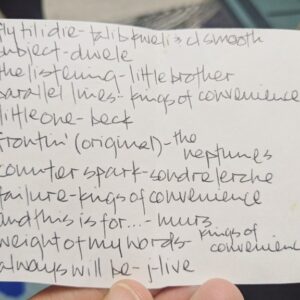 fly til i die - talib kweli & cl smooth
subject - dwele
the listening - little brother
parallel lines - kings of convenience
little one - beck
frontin' (original) - the
neptunes
counter spark - sondre lerche
failure - kings of convenience
and this is for... - murs
weight of my words - kings of
convenience
always will be - j-live